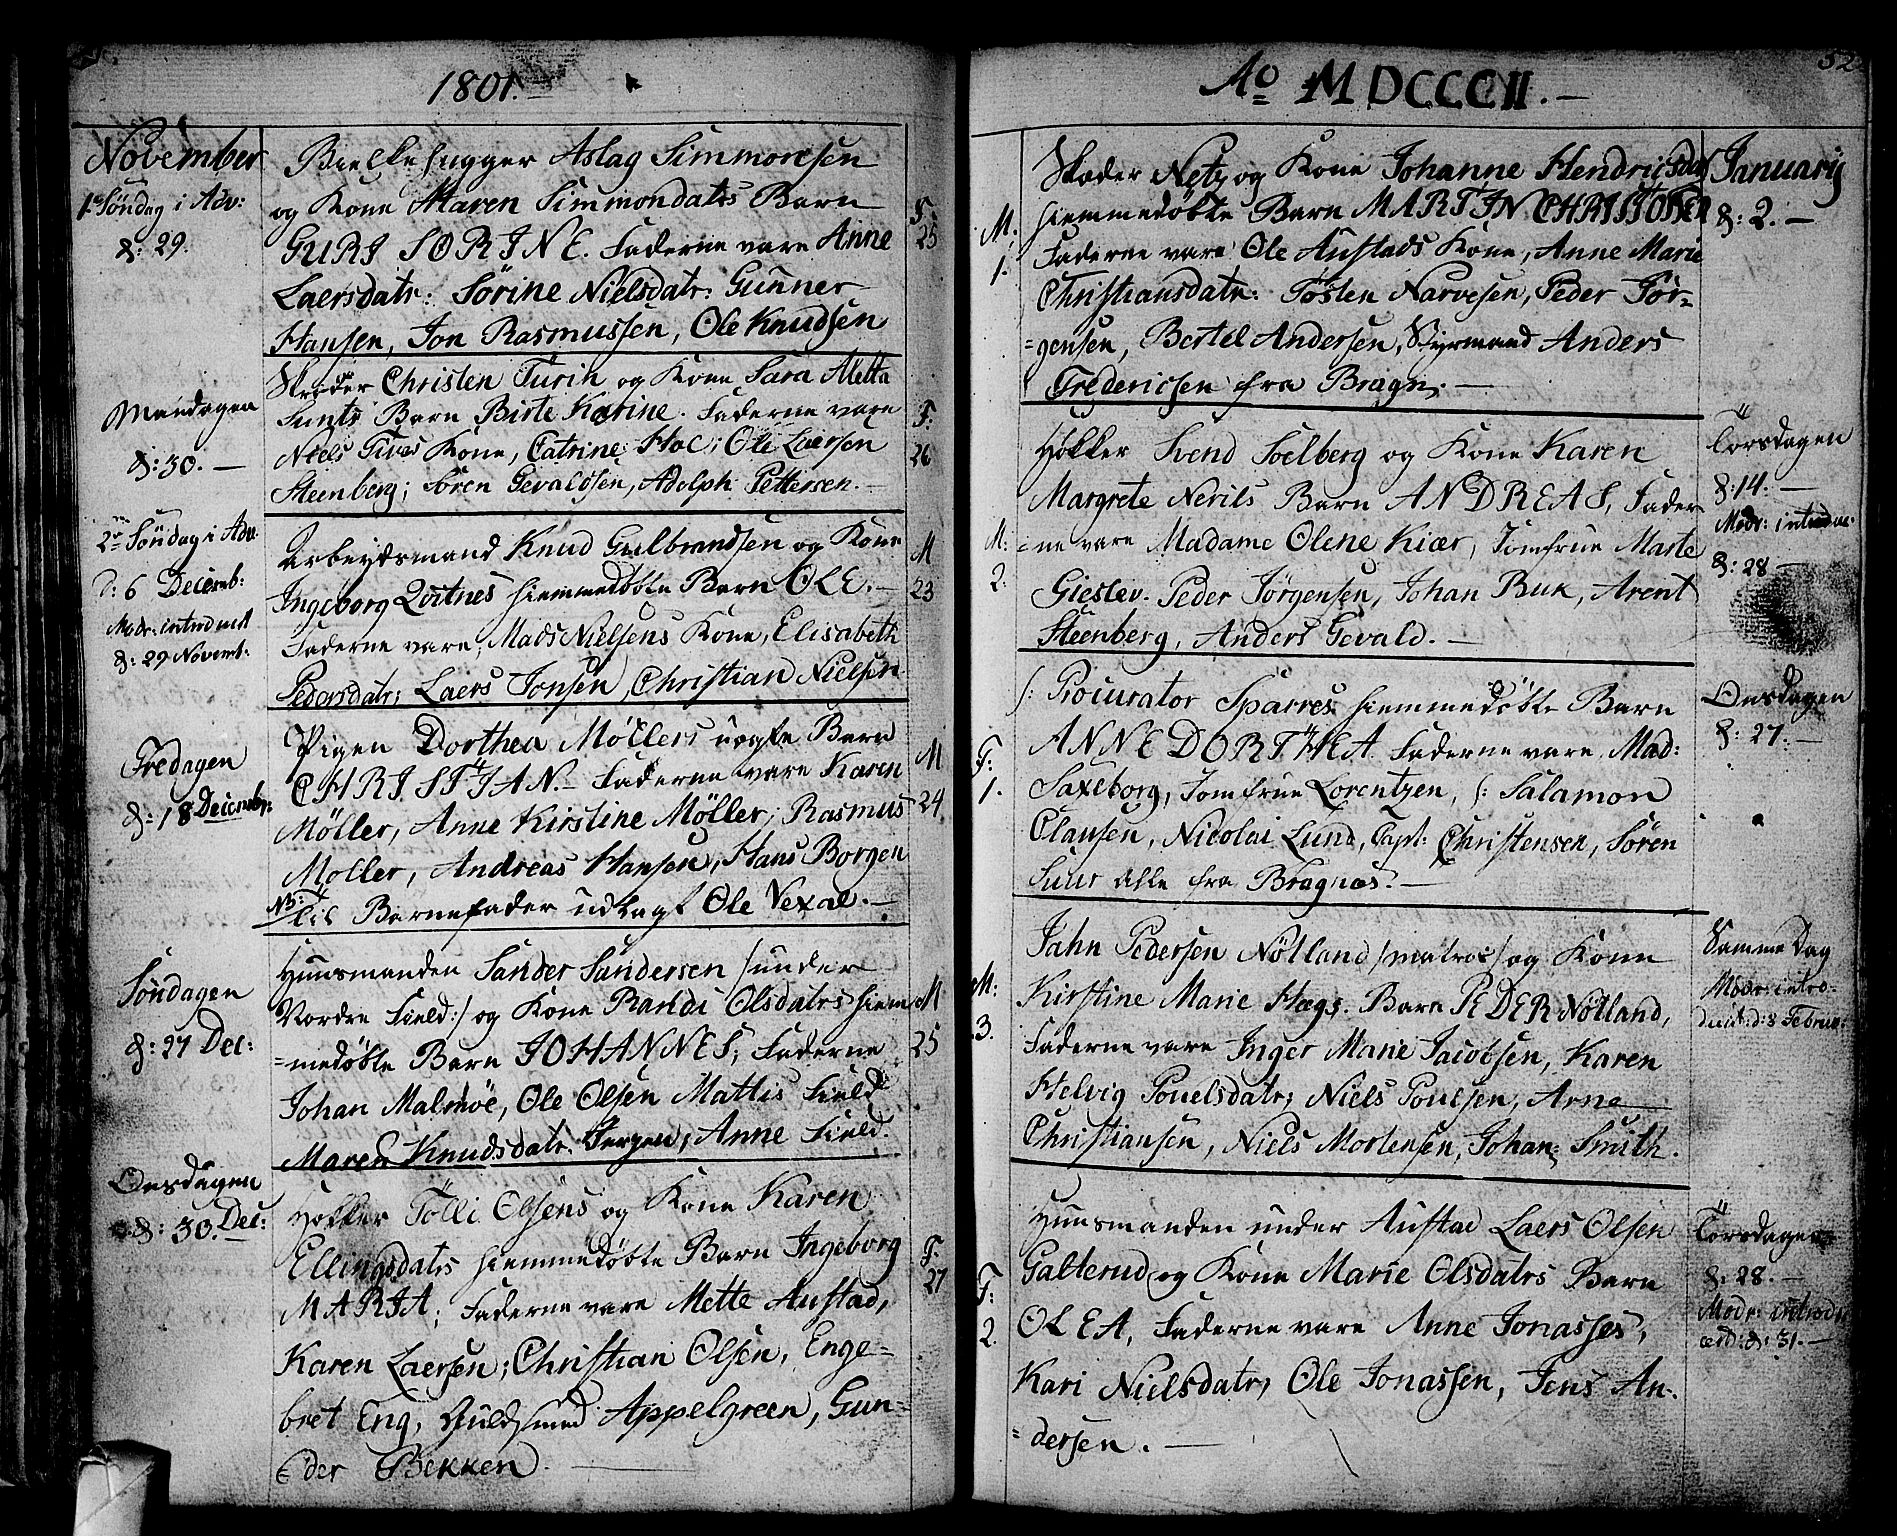 1801.
November
1ste Söndag i Adv:
d: 29.
Bielkehugger Aslag Simmonsen
og Kone Maren Simmondatrs Barn
GURI SORINE. Fadderne vare Anne
Laersdatr: Sörine Nielsdatr: Gunner
Hansen, Jon Rasmussen, Ole Knudsen
F:
25
Mandagen
d: 30. —
Skræder Christen Turin og Kone Sara Metta
Sunts Barn Birte Karine. Fadderne vare
Niels Kone, Catrine Hoe; Ole Laersen
Steenberg; Sören Gevaldsen, Adolph Pettersen. —
F:
26
2den Söndag i Adv.
d: 6 Decemb:
Modr: introducert
d: 29 Novemb:
Arbeydsmand Knud Gulbrandsen og Kone
Ingeborg Qvitnes hiemmedøbte Barn OLE. —
Fadderne vare, Mads Nielsens Kone, Elisabeth
Pedersdatr; Laers Jonsen, Christian Nielsen
M
23
Fredagen
d: 18 Decembr:
Pigen Dorthea Möllers uægte Barn
CHRISTIAN. — Fadderne vare Karen
Möller, Anne Kirstine Möller; Rasmus
Moller, Andreas Hansen, Hans Borgen
NB: til Barnefader udlagt Ole Vexal. —
M
24
Söndagen
d: 27 Dec:
Huusmanden Sander Sandersen /under
Nordre Field:/ og Kone Randi Olsdatrs hiem
=medøbte Barn JOHANNES, Fadderne
Johan Malmöe, Ole Olsen Mattis Field
Maren Knudsdatr. Jørgen, Anne Field.
M
25
Onsdagen
d: 30. Dec:
Høkker Tölli Olsens og Kone Karen
Ellingsdatrs hiemmedøbte Barn Ingeborg
MARIA; Fadderne vare Mette Austad,
Karen Laersen; Christian Olsen, Enge-
bret Eng, Guldsmed Appelgreen, Gun-
=der Bekken. —
F:
27
52
Ao MDCCCII. —
M:
1.
Skoder Netz og Kone Johanne Hendricsdatr
hiemmedøbte Barn MARTIN CHRISTOFFER
Fadderne vare Ole Austads Kone, Anne Marie
Christiansdatr: Tosten Narvesen, Peder Jör-
=gensen, Bertel Andersen, Styrmand Anders
Fredericsen fra Bragn. —
Januarij
d: 2. —
M:
2.
Høkker Svend Soelberg og Kone Karen
Margrete Nerils Barn ANDREAS, Fadder
=ne vare Madame Olene Kiær, Jomfrue Marte
Gieslev. Peder Jörgensen, Johan Buk, Arent
Steenberg, Anders Gevald. —
Torsdagen
d: 14. —
Modr: introduc.
d: 28 —
F:
1.
/: Procurator Sparres hiemmedøbte Barn
ANNE DORTHEA. Fadderne vare, Mad:
Saxeborg, Jomfrue Lorentzen, /: Salamon
Clausen, Nicolai Lund, Capt: Christensen, Sören
Suur alle fra Bragnæs. —
Onsdagen
d: 27. —
M:
3.
Jahn Pedersen Nötland /matros/ og Kone
Kirstine Marie Hægs. Barn PEDER Nötland,
Fadderne vare Inger Marie Jacobsen, Karen
Helvig Pouelsdatr; Niels Poulsen, Arne
Christiansen, Niels Mortensen, Johan Smith.
Samme Dag
Modr: intro-
ducit: d: 8 Februar:
F:
2.
Huusmanden under Austad Laers Olsen
Galterud og Kone Marie Olsdatrs Barn
OLEA, Fadderne vare Anne Jonasses,
Kari Nielsdatr, Ole Jonassen, Jens An-
=dersen. —
Torsdagen
d: 28. —
Modr: introdu
cerd: d: 31. —